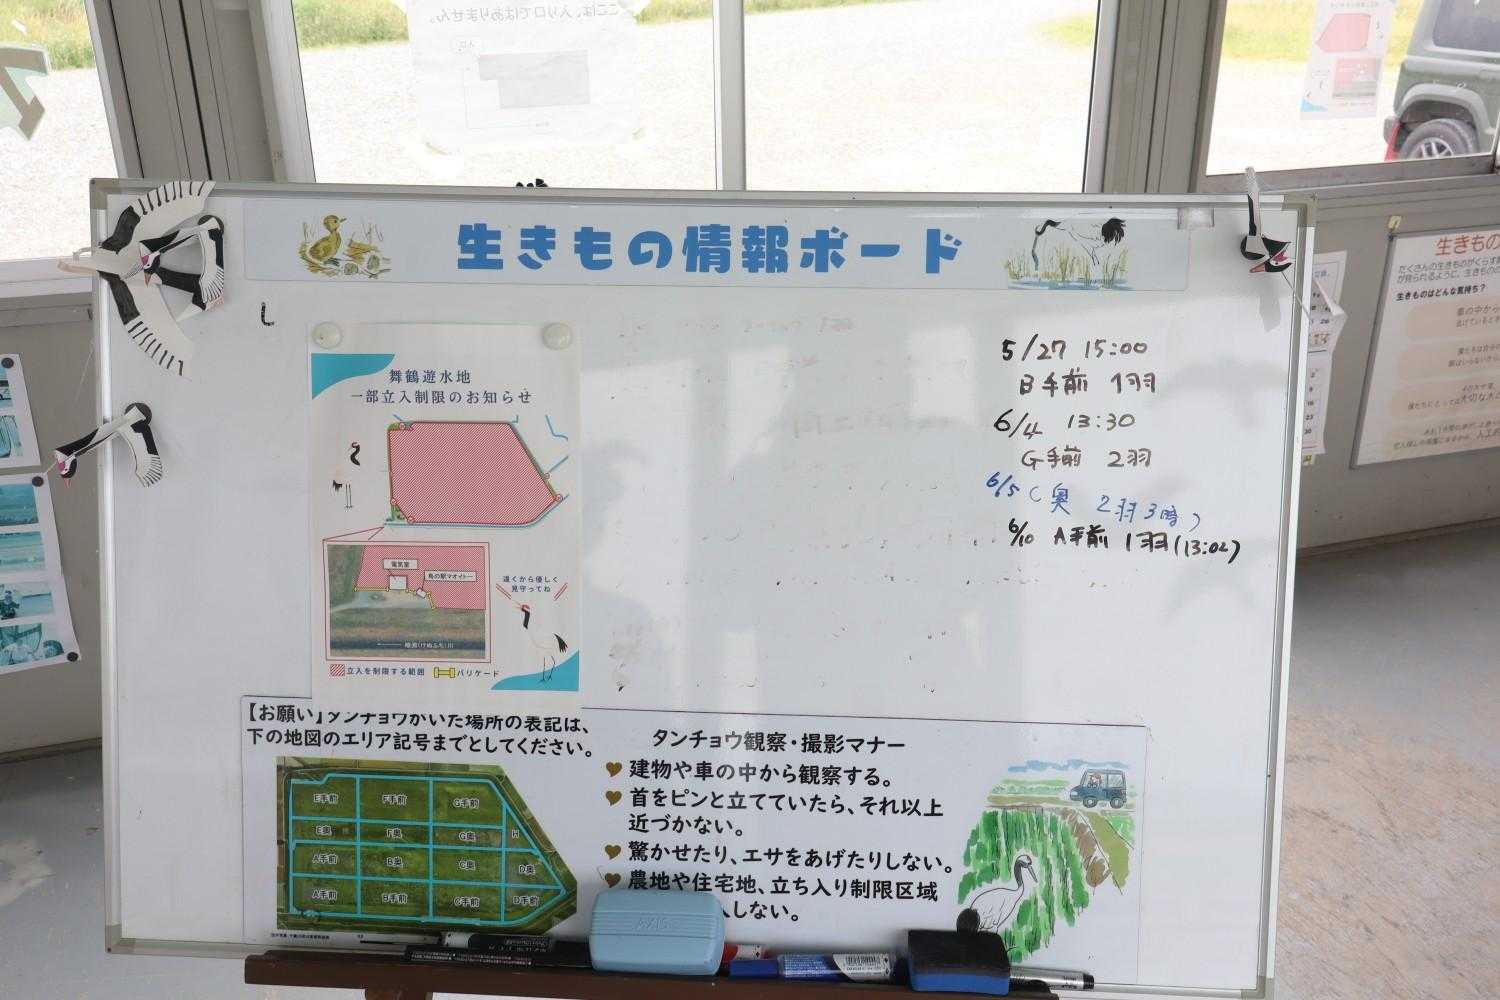 ここは、入り口ではありません。
生きもの情報ボード
し
舞鶴遊水地
一部立入制限のお知らせ
電気室
鳥の駅マオイトー
遠くから優しく
見守ってね
立入を制限する範囲
バリケード
5/27 15:00
B手前 1羽
6/4 13:30
G手前 2羽
6/5 C奥 2羽3時)
6/10 A手前 1羽(13:02)
【お願い】タンチョウがいた場所の表記は、
下の地図のエリア記号までとしてください。
E手前 F手前 G手前
E奥 F奥 G奥 H
A手前 B奥 C奥 D奥
A手前 B手前 C手前 D手前
タンチョウ観察・撮影マナー
建物や車の中から観察する。
首をピンと立てていたら、それ以上
近づかない。
驚かせたり、エサをあげたりしない。
農地や住宅地、立ち入り制限区域
しない。
AXIS
生きもの
たくさんの生きものがくらす
が見られるように、生きものの
生きものはどんな気持ち?
車の中から